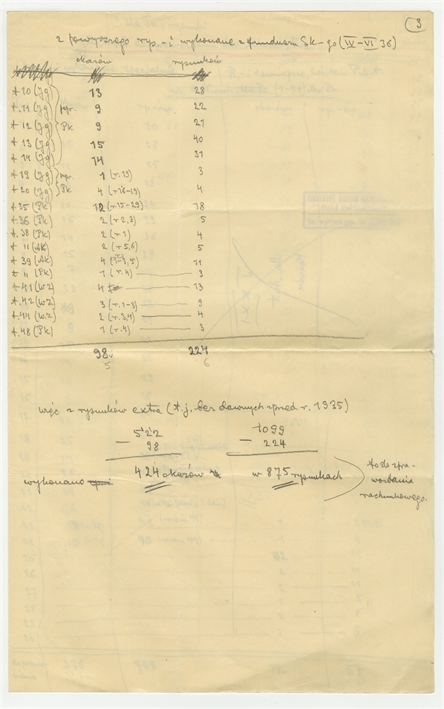 3
z powyższego rys.-i wykonane z funduszu Sk-go (IV-VI 36)
okazów rysunków
t. 10 (Jg) 13 28
t. 11 (Jg) rys. 9 22
t. 12 (Jg) Pk 9 21
t. 13 (Jg) 15 40
t. 14 (Jg) 14 31
t. 19 (Jg) rys. 1 (r.19) 3
t. 20 (Jg) Pk 4 (r.16-19) 4
t. 35 (Pk) 12 (r.15-29) 18
t. 36 (Pk) 2 (r.2,3) 5
t. 38 (Pk) 2 (r.1) 4
t. 11 (Ak) 2 (r.5,6) 5
t. 39 (Ak) 4 11
t. 11 (Pk) 1 (r.4) 3
t. 41 (Wz) 4 13
t. 42 (Wz) 3 (r.1-3) 9
t. 44 (Wz) 2 (r.3,4) 4
t. 48 (Pk) 1 (r.4) 3
98 224
5 6
więc z rysunków extra (t.j. bez dawnych sprzed r. 1935)
522 1099
- 98 - 224
wykonano 424 okazów w 875 rysunkach
do sprawozdania
rachunkowego.